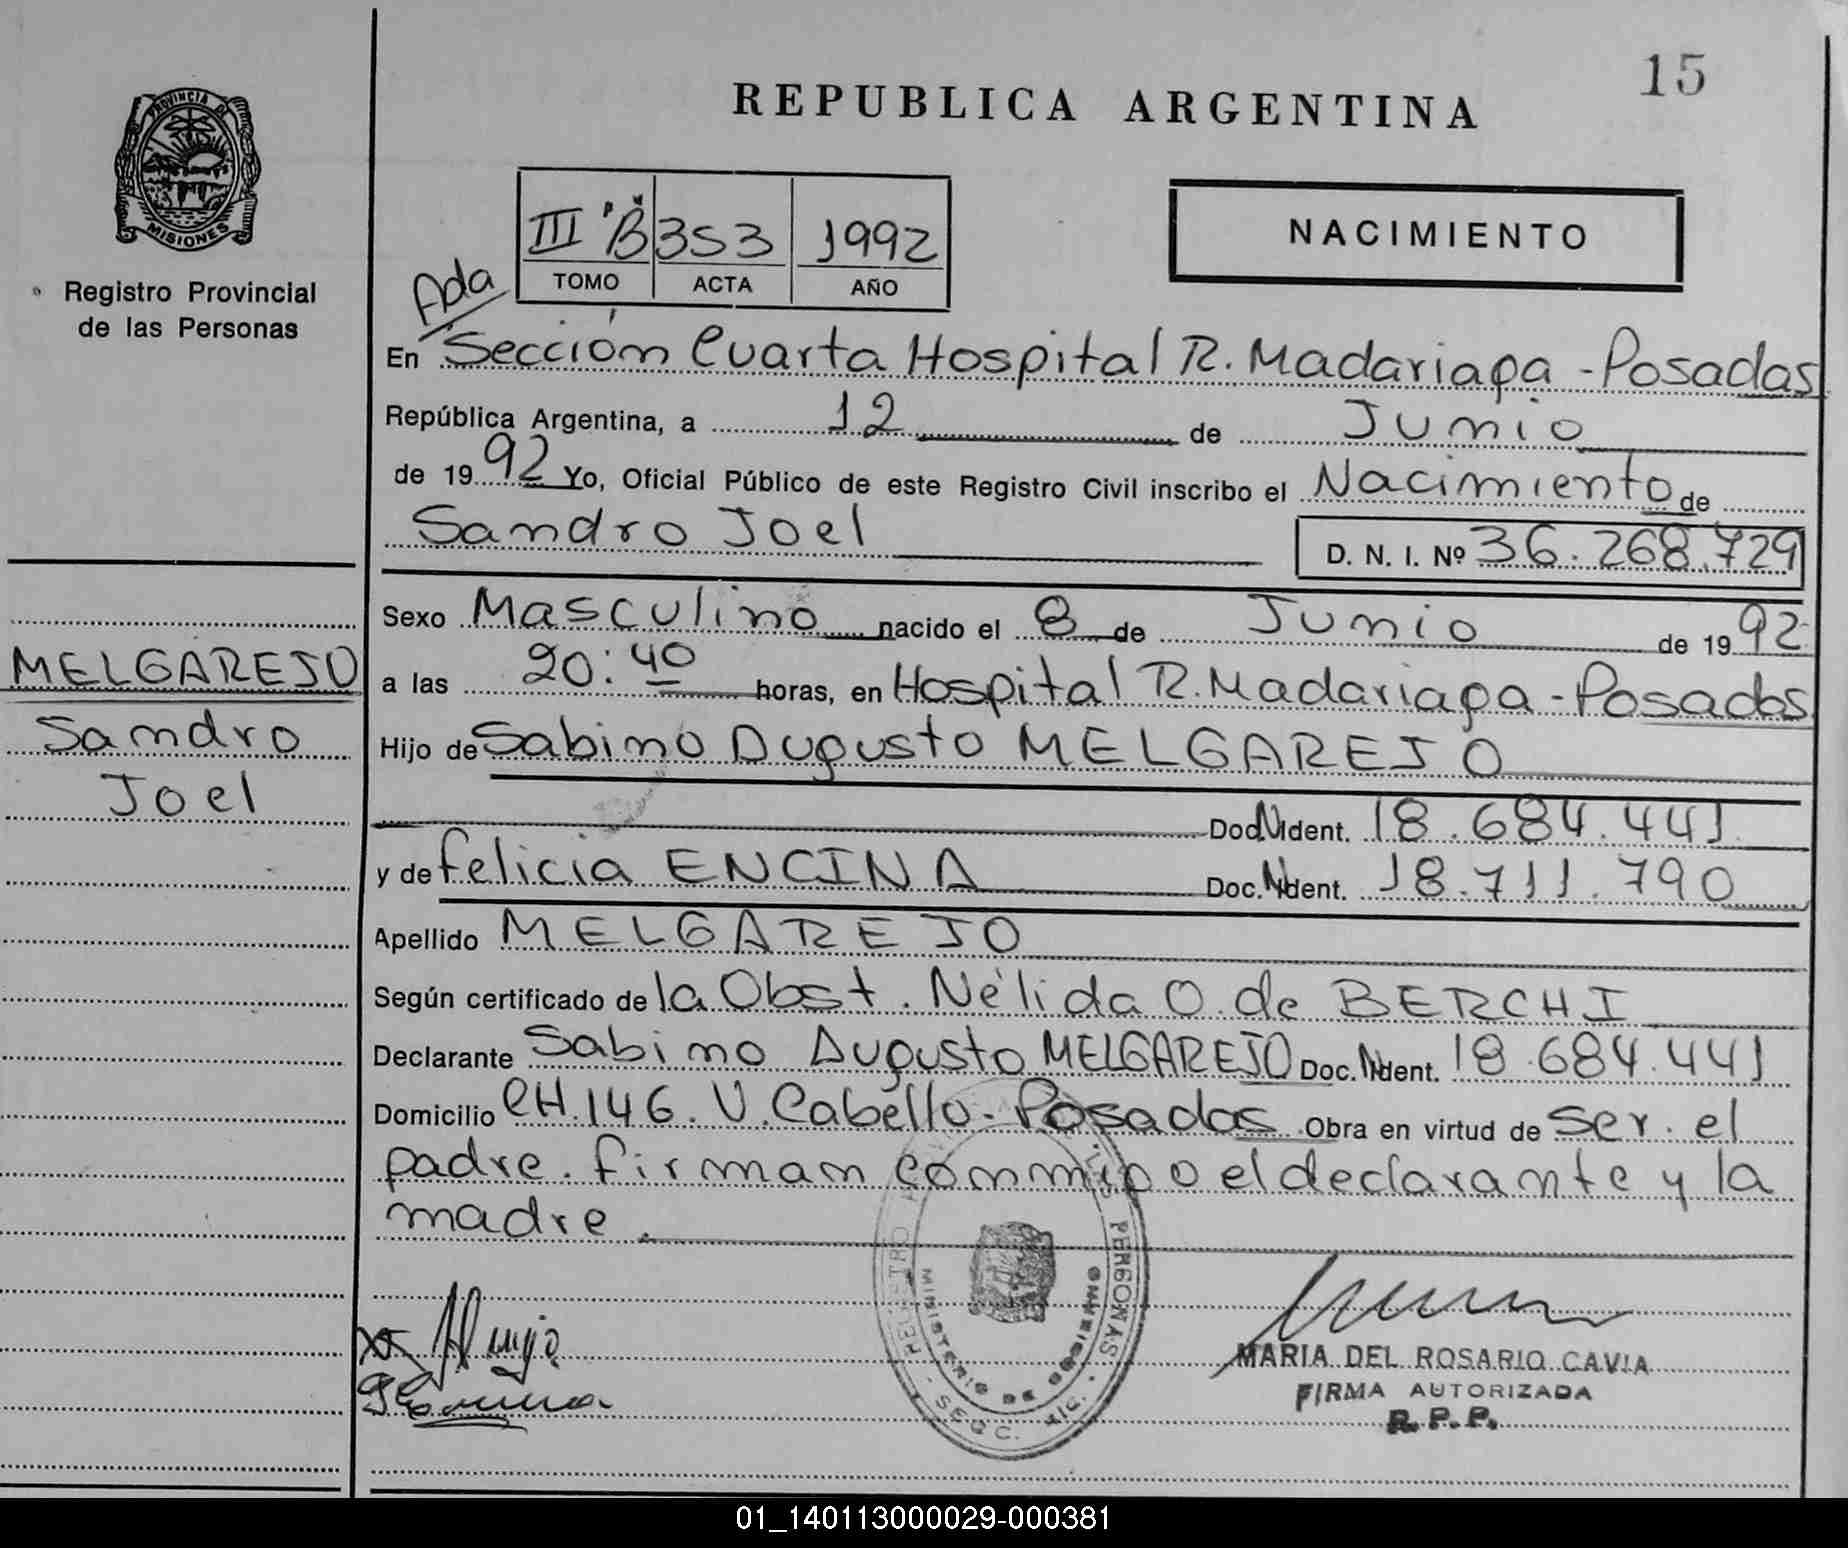 15
REPUBLICA ARGENTINA
PROVINCIA DE
MISIONES
Registro Provincial
de las Personas
III "B" 353 1992
TOMO ACTA AÑO
NACIMIENTO
Ada
En Sección Cuarta Hospital R. Madariaga - Posadas
República Argentina, a 12 de Junio
de 1992 Yo, Oficial Público de este Registro Civil inscribo el Nacimiento de
Sandro Joel D. N. I. Nº 36.268.729
Sexo Masculino nacido el 8 de Junio de 1992
MELGAREJO
Sandro
Joel
a las 20:40 horas, en Hospital R. Madariaga - Posadas
Hijo de Sabino Augusto MELGAREJO
Doc. Ident. 18.684.441
y de Felicia ENCINA Doc. Ident. 18.711.790
Apellido MELGAREJO
Según certificado de la Obst. Nélida O. de BERCHI
Declarante Sabino Augusto MELGAREJO Doc. Ident. 18.684.441
Domicilio CH. 146. V. Cabello - Posadas Obra en virtud de ser el
padre. firman conmigo el declarante y la
madre.
MARIA DEL ROSARIO CAVIA
FIRMA AUTORIZADA
R. P. P.
MINISTERIO DE GOBIERNO
01_140113000029-000381